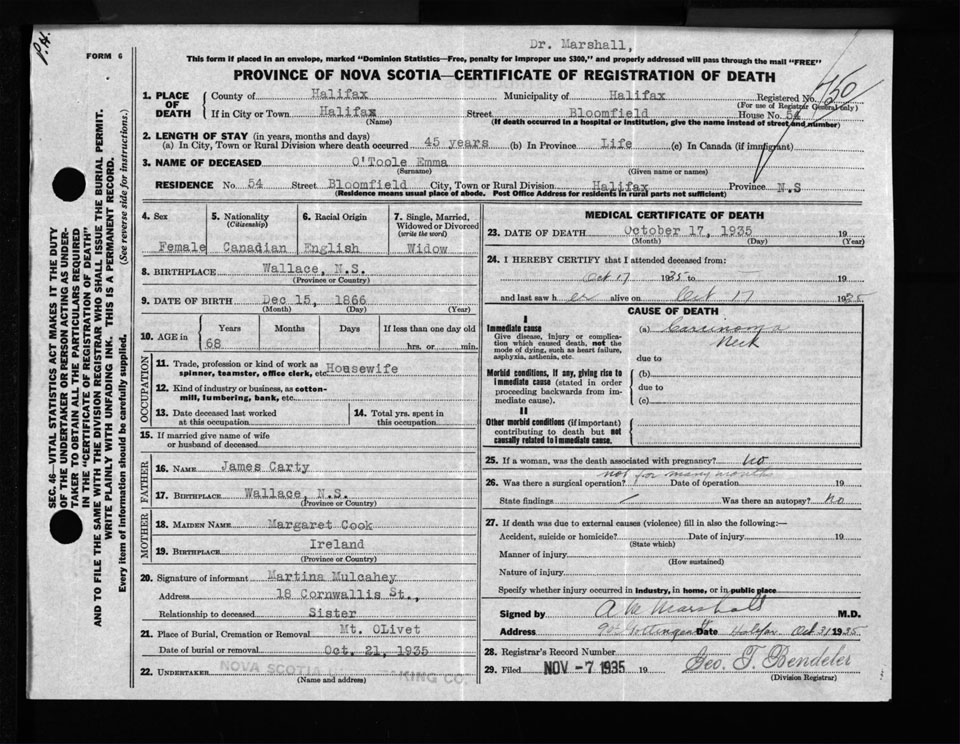 P.H.
FORM 6
Dr. Marshall,
This form if placed in an envelope, marked "Dominion Statistics—Free, penalty for improper use $300," and properly addressed will pass through the mail "FREE"
PROVINCE OF NOVA SCOTIA—CERTIFICATE OF REGISTRATION OF DEATH
1. PLACE OF DEATH
County of Halifax Municipality of Halifax Registered No. 750
(For use of Registrar General only)
If in City or Town Halifax Street Bloomfield House No. 54
(Name) (If death occurred in a hospital or institution, give the name instead of street and number)
2. LENGTH OF STAY (in years, months and days)
(a) In City, Town or Rural Division where death occurred 45 years (b) In Province Life (c) In Canada (if immigrant)
3. NAME OF DECEASED O'Toole Emma
(Surname) (Given name or names)
RESIDENCE No. 54 Street Bloomfield City, Town or Rural Division Halifax Province N.S
(Residence means usual place of abode. Post Office Address for residents in rural parts not sufficient)
4. Sex Female
5. Nationality (Citizenship) Canadian
6. Racial Origin English
7. Single, Married, Widowed or Divorced (write the word) Widow
8. BIRTHPLACE Wallace, N.S.
(Province or Country)
9. DATE OF BIRTH Dec 15, 1866
(Month) (Day) (Year)
10. AGE in Years Months Days If less than one day old
68 hrs. or min.
OCCUPATION
11. Trade, profession or kind of work as spinner, teamster, office clerk, etc. Housewife
12. Kind of industry or business, as cotton-mill, lumbering, bank, etc.
13. Date deceased last worked at this occupation
14. Total yrs. spent in this occupation
15. If married give name of wife or husband of deceased
FATHER
16. NAME James Carty
17. BIRTHPLACE Wallace, N.S.
(Province or Country)
MOTHER
18. MAIDEN NAME Margaret Cook
19. BIRTHPLACE Ireland
(Province or Country)
20. Signature of informant Martina Mulcahey
Address 18 Cornwallis St.,
Relationship to deceased Sister
21. Place of Burial, Cremation or Removal Mt. OLivet
Date of burial or removal Oct. 21, 1935
22. UNDERTAKER NOVA SCOTIA KING CO
(Name and address)
MEDICAL CERTIFICATE OF DEATH
23. DATE OF DEATH October 17, 1935 19
(Month) (Day) (Year)
24. I HEREBY CERTIFY that I attended deceased from:
Oct 17 1935 to 19
and last saw her alive on Oct 17 1935
CAUSE OF DEATH
I
Immediate cause
Give disease, injury or complication which caused death, not the mode of dying, such as heart failure, asphyxia, asthenia, etc.
(a) Carcinoma
Neck
due to
Morbid conditions, if any, giving rise to immediate cause (stated in order proceeding backwards from immediate cause).
(b)
due to
(c)
II
Other morbid conditions (if important) contributing to death but not causally related to immediate cause.
25. If a woman, was the death associated with pregnancy? no
26. Was there a surgical operation? not for many months Date of operation 19
State findings Was there an autopsy? No
27. If death was due to external causes (violence) fill in also the following:—
Accident, suicide or homicide? Date of injury 19
(State which)
Manner of injury
(How sustained)
Nature of injury
Specify whether injury occurred in industry, in home, or in public place
Signed by A M Marshall M.D.
Address Gottingen Date Halifax Oct 31 1935
28. Registrar's Record Number
29. Filed NOV -7 1935 19 Geo. T. Bendeler
(Division Registrar)
SEC. 46—VITAL STATISTICS ACT MAKES IT THE DUTY
OF THE UNDERTAKER OR PERSON ACTING AS UNDER-
TAKER TO OBTAIN ALL THE PARTICULARS REQUIRED
IN THE "CERTIFICATE OF REGISTRATION OF DEATH"
AND TO FILE THE SAME WITH THE DIVISION REGISTRAR WHO SHALL ISSUE THE BURIAL PERMIT.
WRITE PLAINLY WITH UNFADING INK. THIS IS A PERMANENT RECORD.
Every item of information should be carefully supplied. (See reverse side for instructions.)